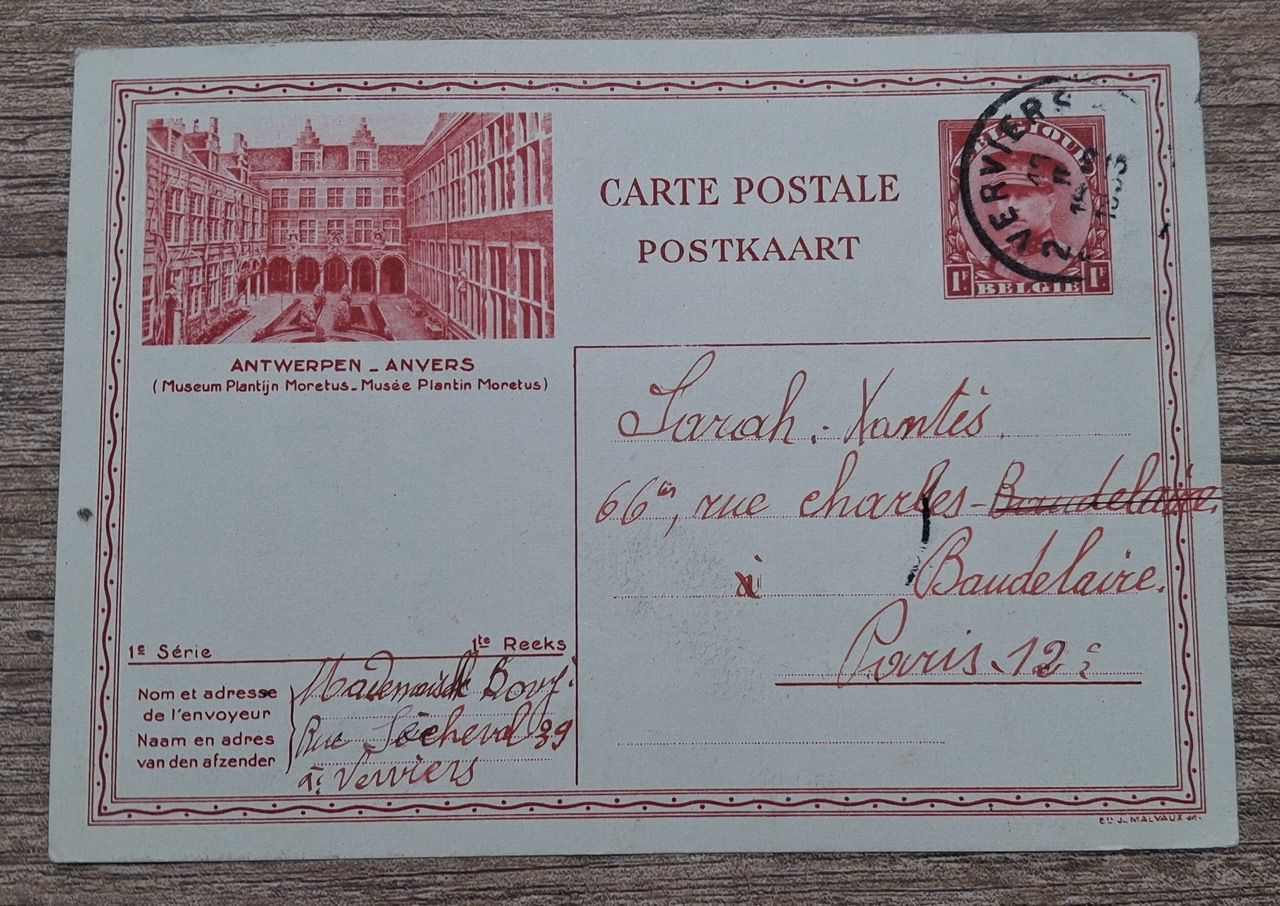 CARTE POSTALE
POSTKAART
BELGIQUE
1F BELGIE 1F
VERVIERS
2
ANTWERPEN - ANVERS
(Museum Plantijn Moretus - Musée Plantin Moretus)
1e Série
1te Reeks
Sarah. Xantès.
66bis, rue charles - Baudelaire.
à Baudelaire.
Paris. 12e
Nom et adresse
de l'envoyeur
Naam en adres
van den afzender
Mademoiselle Bovy
Rue Sécheval 39
à Verviers
Etn J. MALVAUX